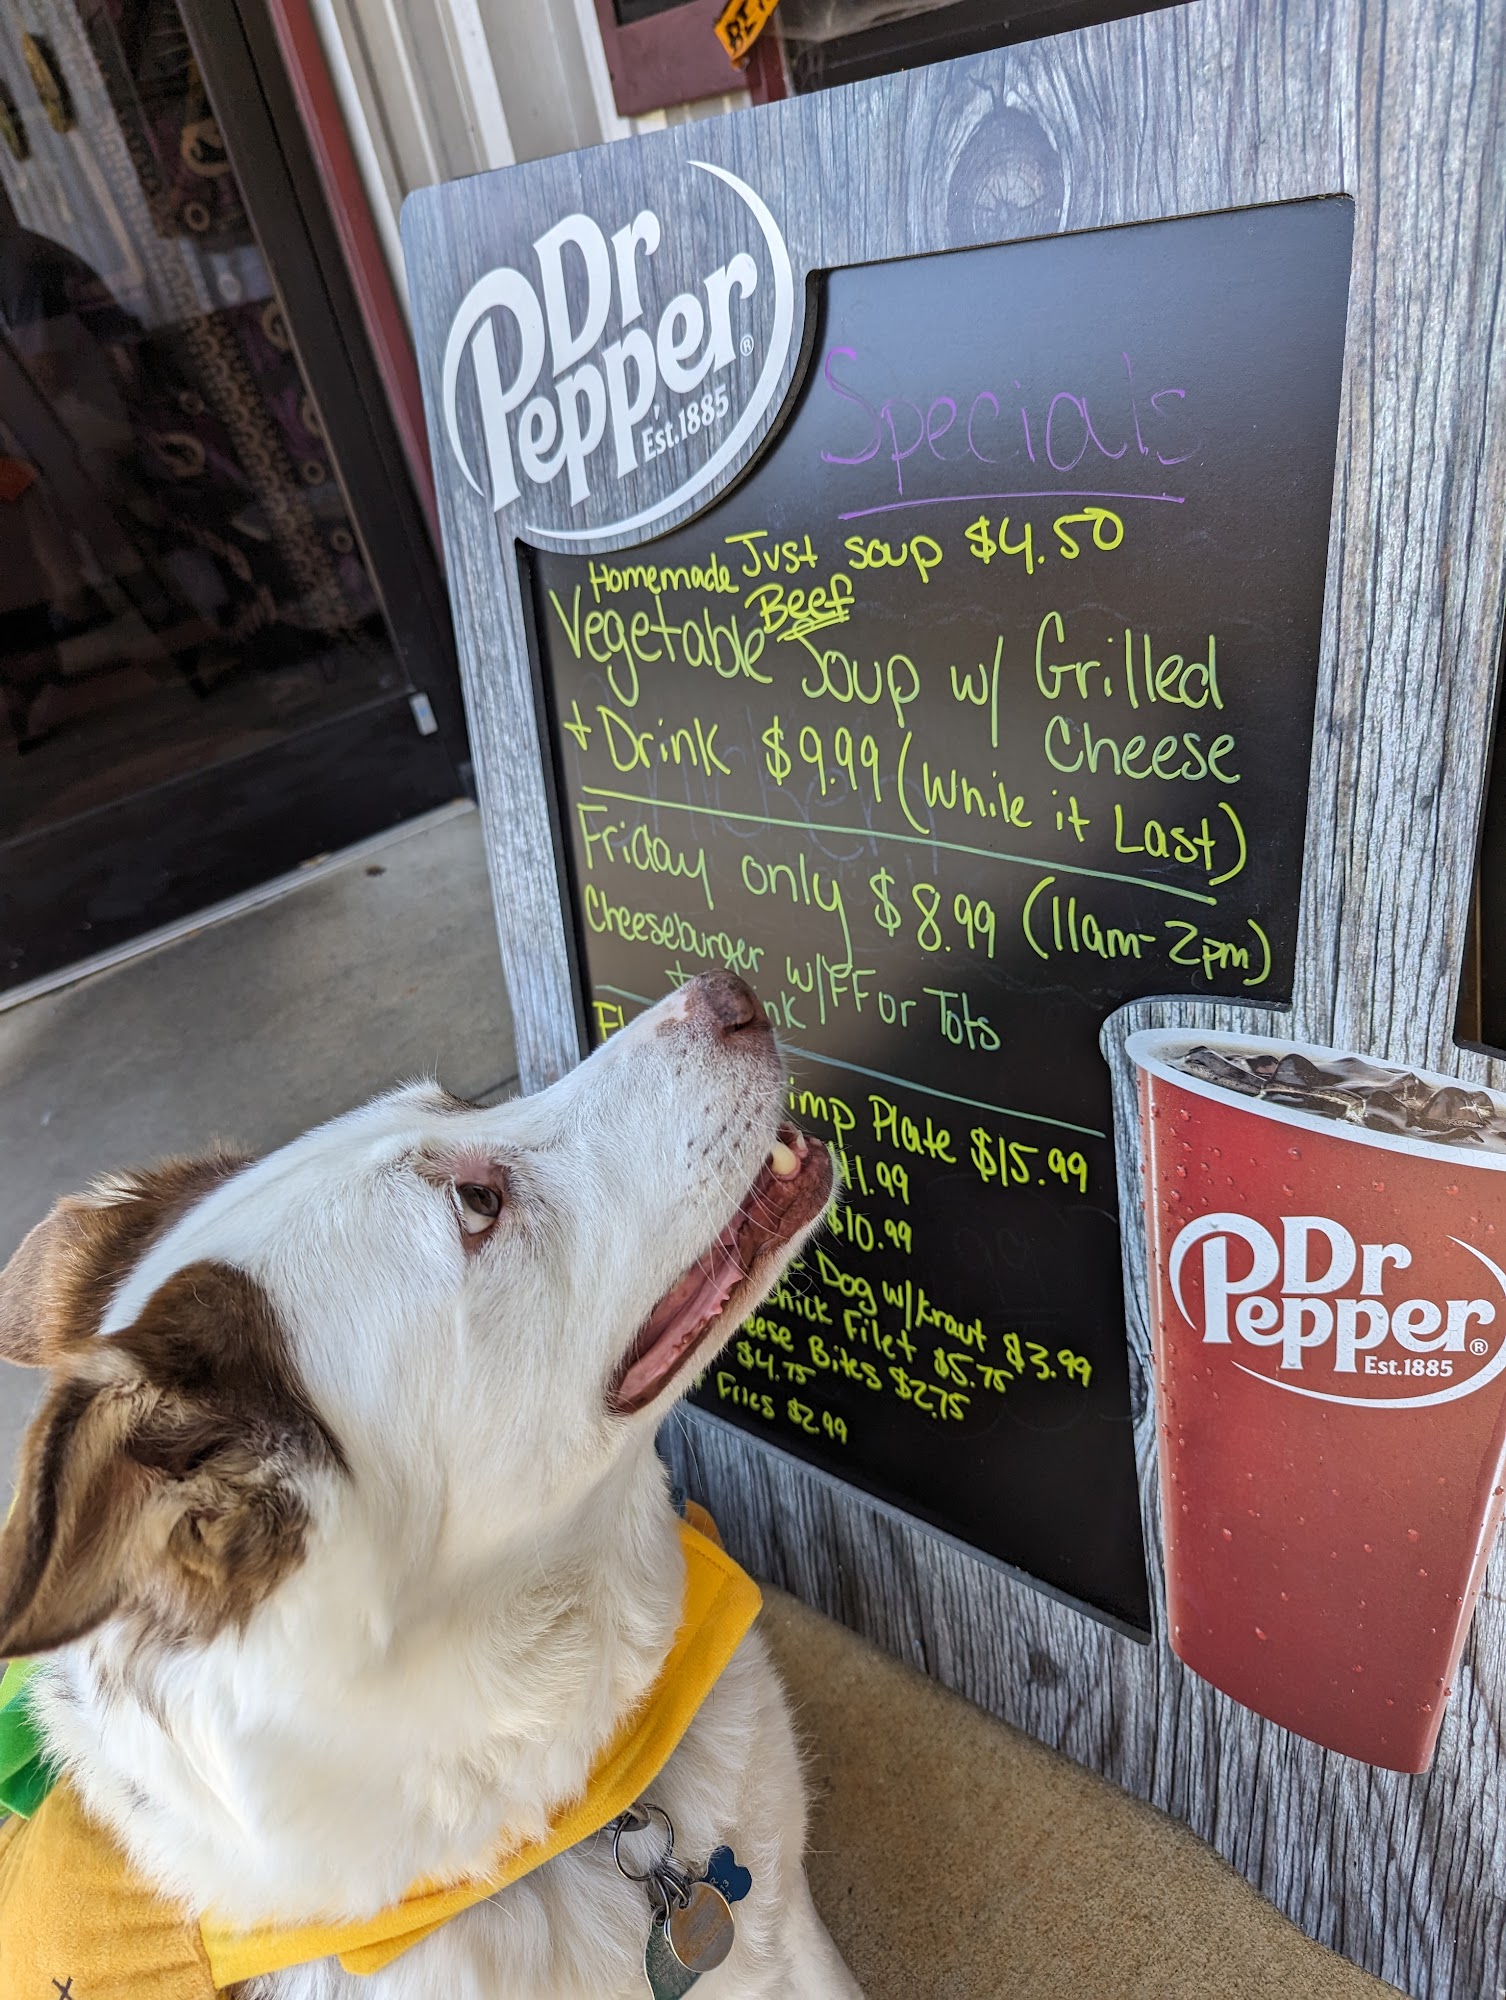 Dr
Pepper®
Est.1885
Specials
Just soup $4.50
Homemade
Beef
Vegetable Soup w/ Grilled
Cheese
+ Drink $9.99 (While it Last)
Friday only $8.99 (11am-2pm)
Cheeseburger w/FF or Tots
Plate $15.99
$10.99
Dog w/kraut $3.99
Filet $5.75
Bites $2.75
$4.75
Fries $2.99
Dr
Pepper®
Est.1885